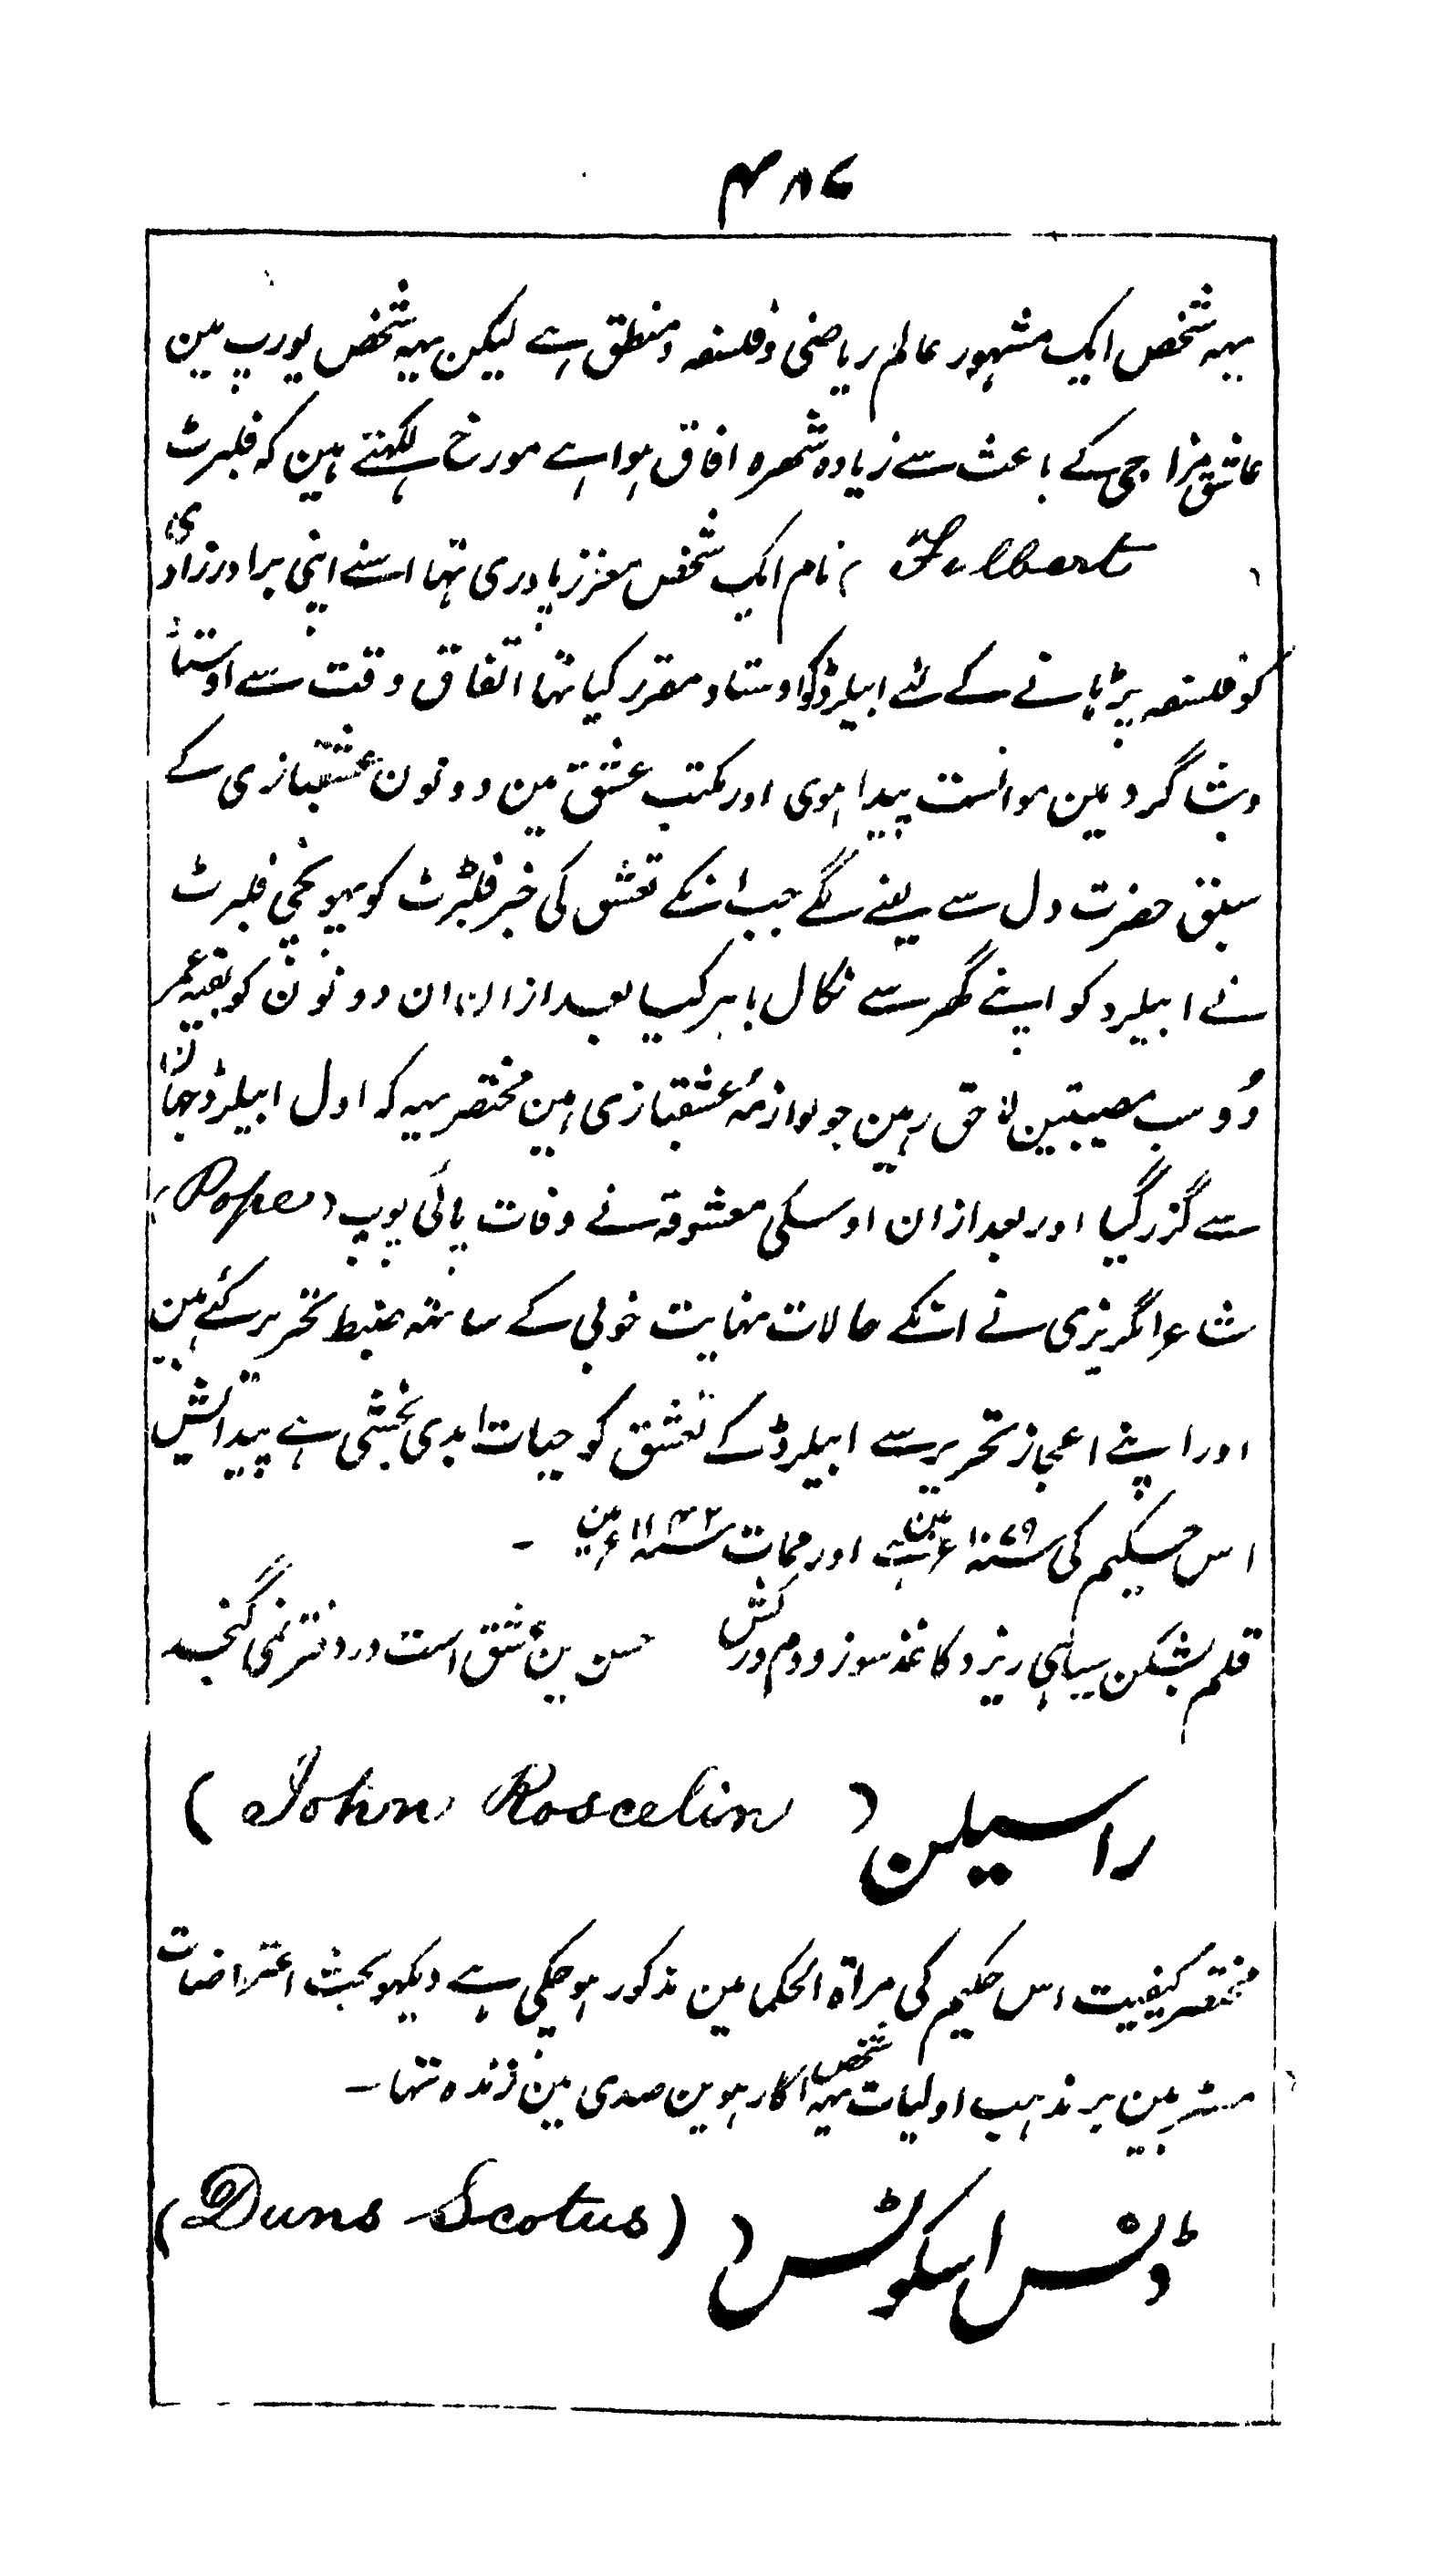 ۴۸۷
یہہ شخص ایک مشہور عالم ریاضی و فلسفہ و منطق ہے لیکن یہہ شخص یورپ مین
عاشق مزاجی کے باعث سے زیادہ شھرہ افاق ہوا ہے مورخ لکہتے ہین کہ فلبرٹ
Fulbert ) نام ایک شخص معزز پادری تہا اسنے اپنی برادرزادی
کو فلسفہ پڑہانے کے لئے ابیلرڈ کو اوستاد مقرر کیا تہا اتفاق وقت سے اوستاد
و شاگرد مین موانست پیدا ہوی اور مکتب عشق مین دونون عشقبازی کے
سبق حضرت دل سے لینے لگے جب انکے تعشق کی خبر فلبرٹ کو پہونچی فلبرٹ
نے ابیلرد کو اپنے گھر سے نکال باہر کیا بعد ازان ان دونون کو بقیہ عمر
وُو سب مصیبتین لاحق رہین جو لوازمہٗ عشقبازی ہین مختصر یہہ کہ اول ابیلرڈ جہان
سے گزر گیا اور بعد ازان اوسکی معشوقہ نے وفات پائی پوپ (Pope)
شاعر انگریزی نے انکے حالات نہایت خوبی کے ساتہہ ضبط تحریر کئے ہین
اور اپنے اعجاز تحریر سے ابیلرڈ کے تعشق کو حیات ابدی بخشی ہے پیدائش
اس حکیم کی سنہ ۱۰۷۹ء مین ہے اور ممات سنہ ۱۱۴۲ء مین ۔
قلم بشکن سیاہی ریز و کاغذ سوز و دم درکش حسن این عشق است در دفتر نمی گنجد
راسیلن ( John Roscelin )
مختصر کیفیت اس حکیم کی مراۃ الحکما مین مذکور ہو چکی ہے دیکھو بحث اعتراضات
مسٹر بین بر مذہب اولیات یہہ شخص اگارہوین صدی مین زندہ تہا ۔
ڈنس اسکوٹس ( Duns Scotus )